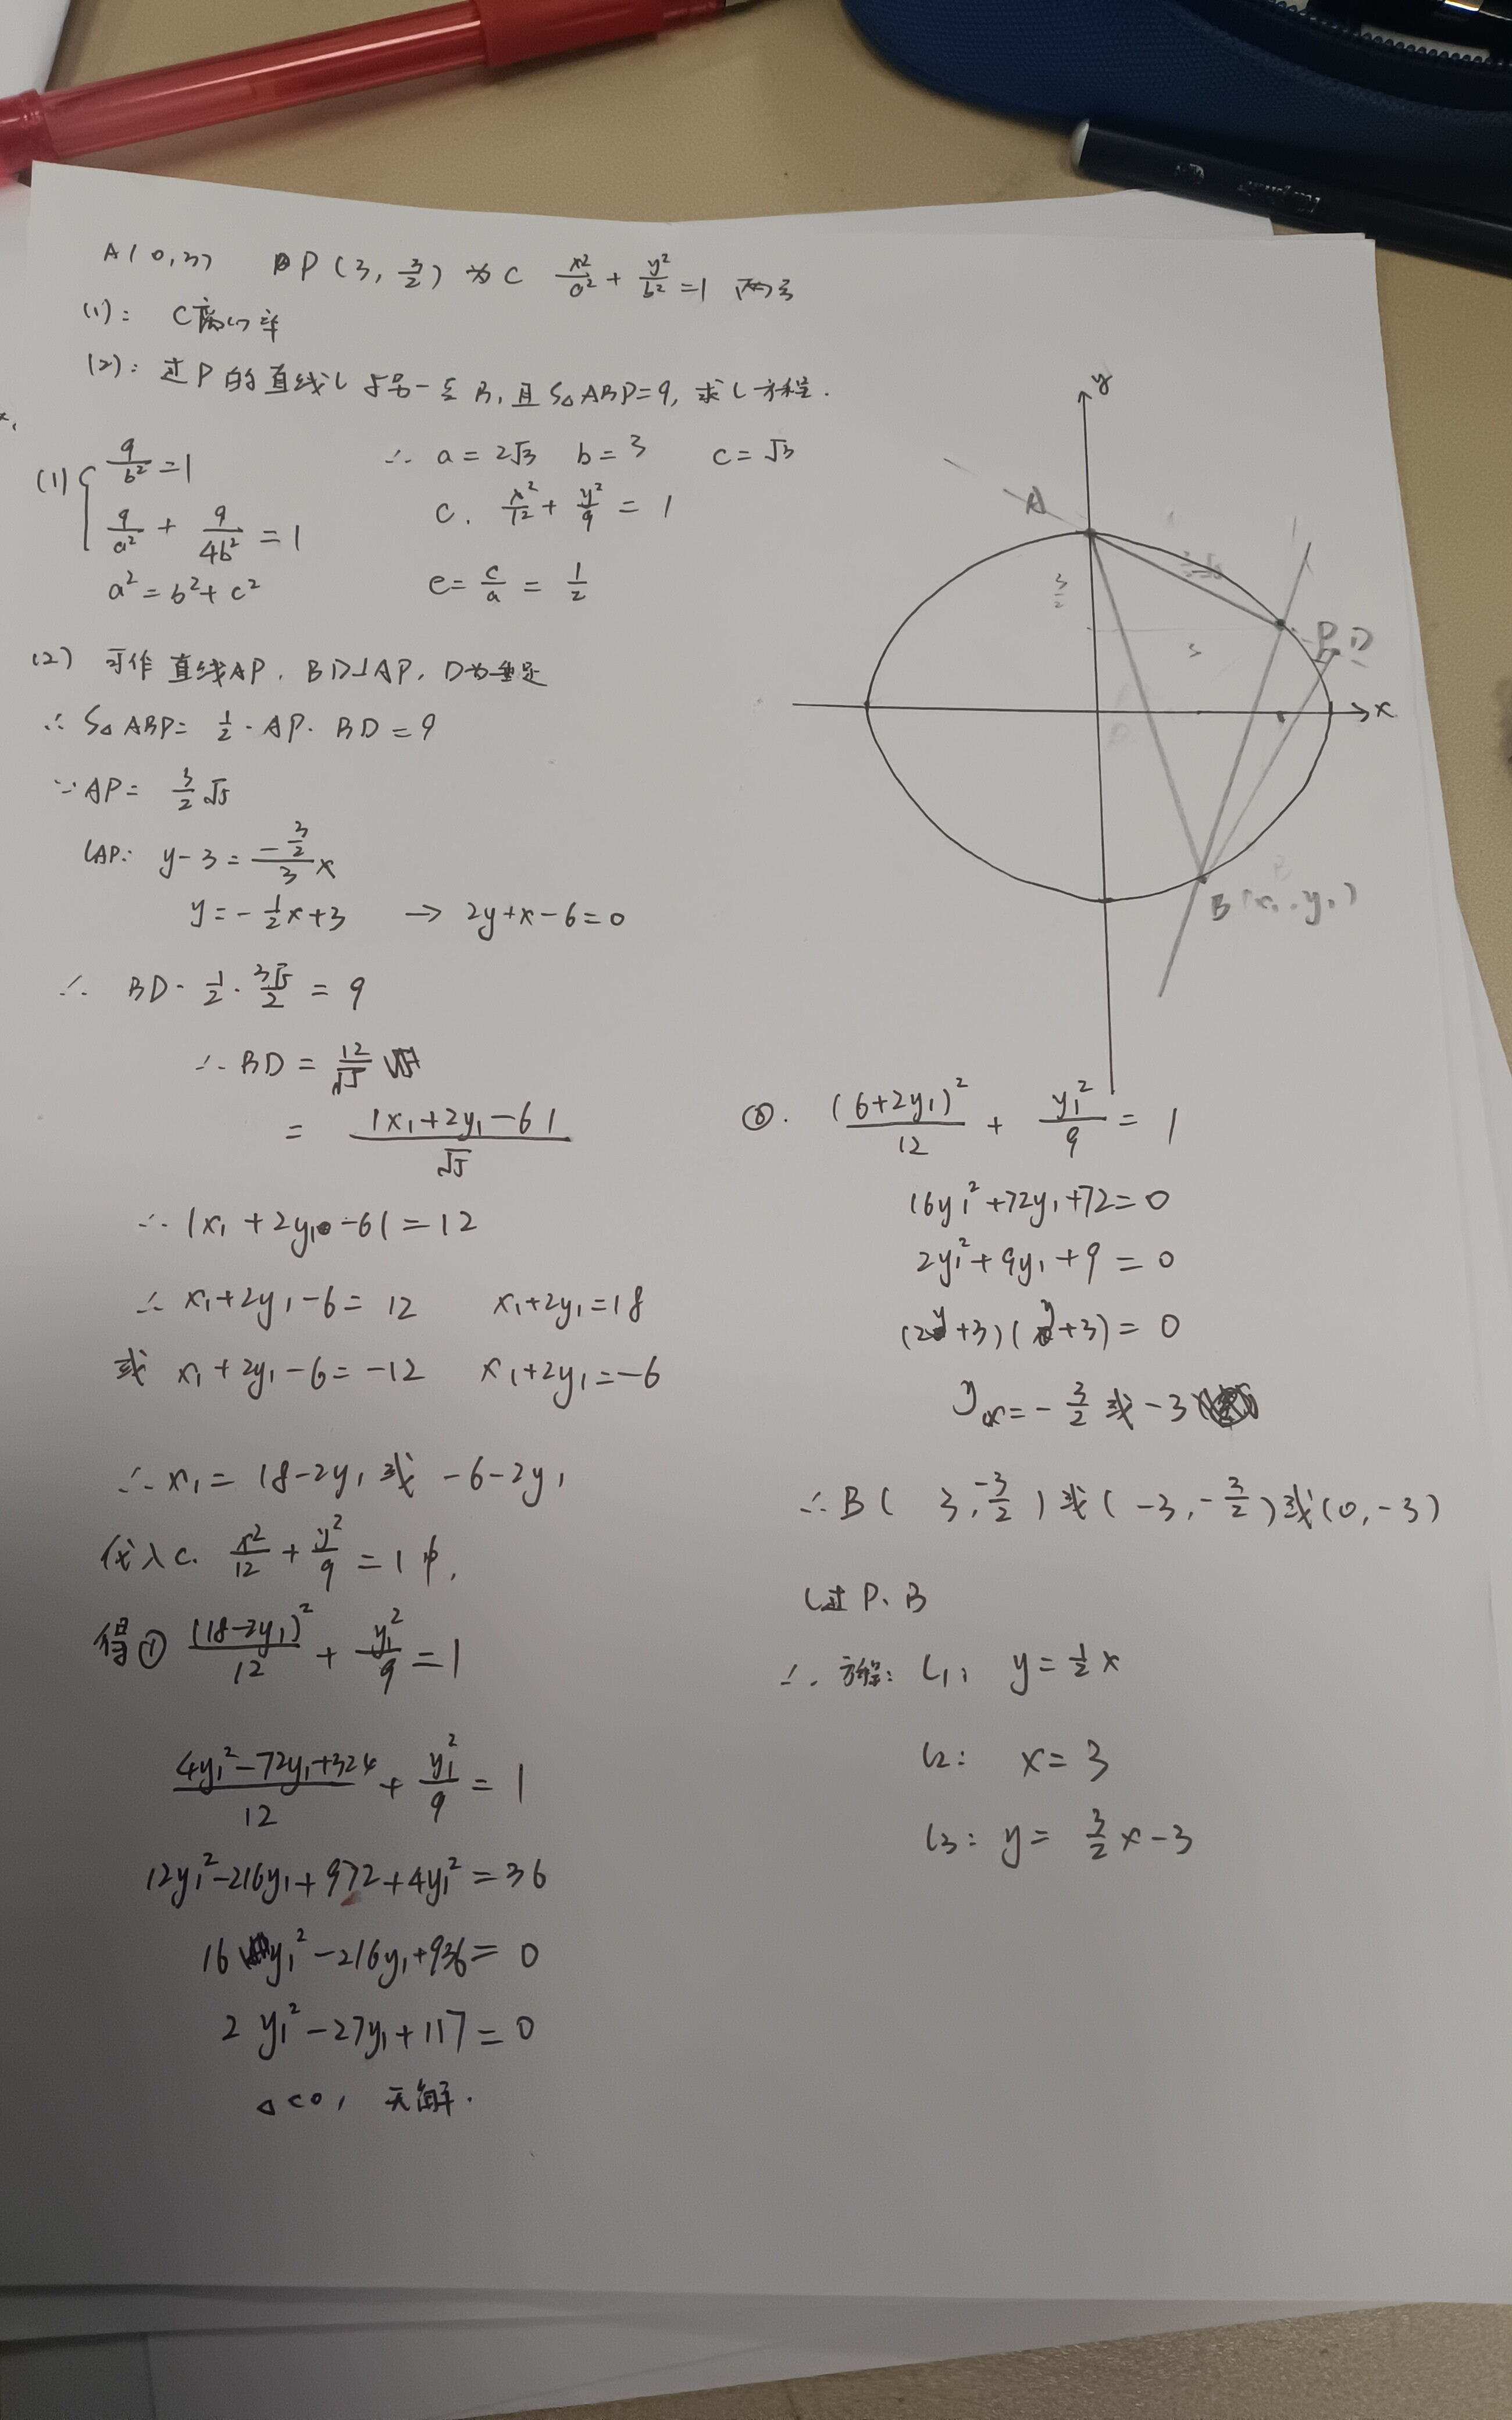 A(0,3) P(3, 3/2) 为 C x²/a² + y²/b² = 1 两点
(1): C离心率
(2): 过P的直线l与另一点B, 且S△ABP=9, 求l方程.
(1) { 9/b² = 1
9/a² + 9/4b² = 1
a² = b² + c²
∴ a = 2√3 b = 3 c = √3
C. x²/12 + y²/9 = 1
e = c/a = 1/2
(2) 可作直线AP, BD⊥AP, D为垂足
∴ S△ABP = 1/2 · AP · BD = 9
∵ AP = 3/2 √5
lAP: y-3 = (-3/2)/3 x
y = -1/2 x + 3 → 2y+x-6=0
∴ BD · 1/2 · 3√5/2 = 9
∴ BD = 12/√5
= |x₁+2y₁-6| / √5
∴ |x₁+2y₁-6| = 12
∴ x₁+2y₁-6 = 12 x₁+2y₁=18
或 x₁+2y₁-6 = -12 x₁+2y₁=-6
∴ x₁ = 18-2y₁ 或 -6-2y₁
代入C. x²/12 + y²/9 = 1 中,
得① (18-2y₁)²/12 + y₁²/9 = 1
(4y₁²-72y₁+324)/12 + y₁²/9 = 1
12y₁²-216y₁+972+4y₁² = 36
16y₁²-216y₁+936 = 0
2y₁²-27y₁+117 = 0
△<0, 无解.
y
A
3/2
3
P D
x
B(x₁,y₁)
②. (6+2y₁)²/12 + y₁²/9 = 1
16y₁²+72y₁+72=0
2y₁²+9y₁+9=0
(2y+3)(y+3)=0
= -3/2 或 -3
∴ B(3, -3/2) 或 (-3, -3/2) 或 (0, -3)
l过P、B
∴ 方程: l₁: y = 1/2 x
l₂: x = 3
l₃: y = 3/2 x - 3